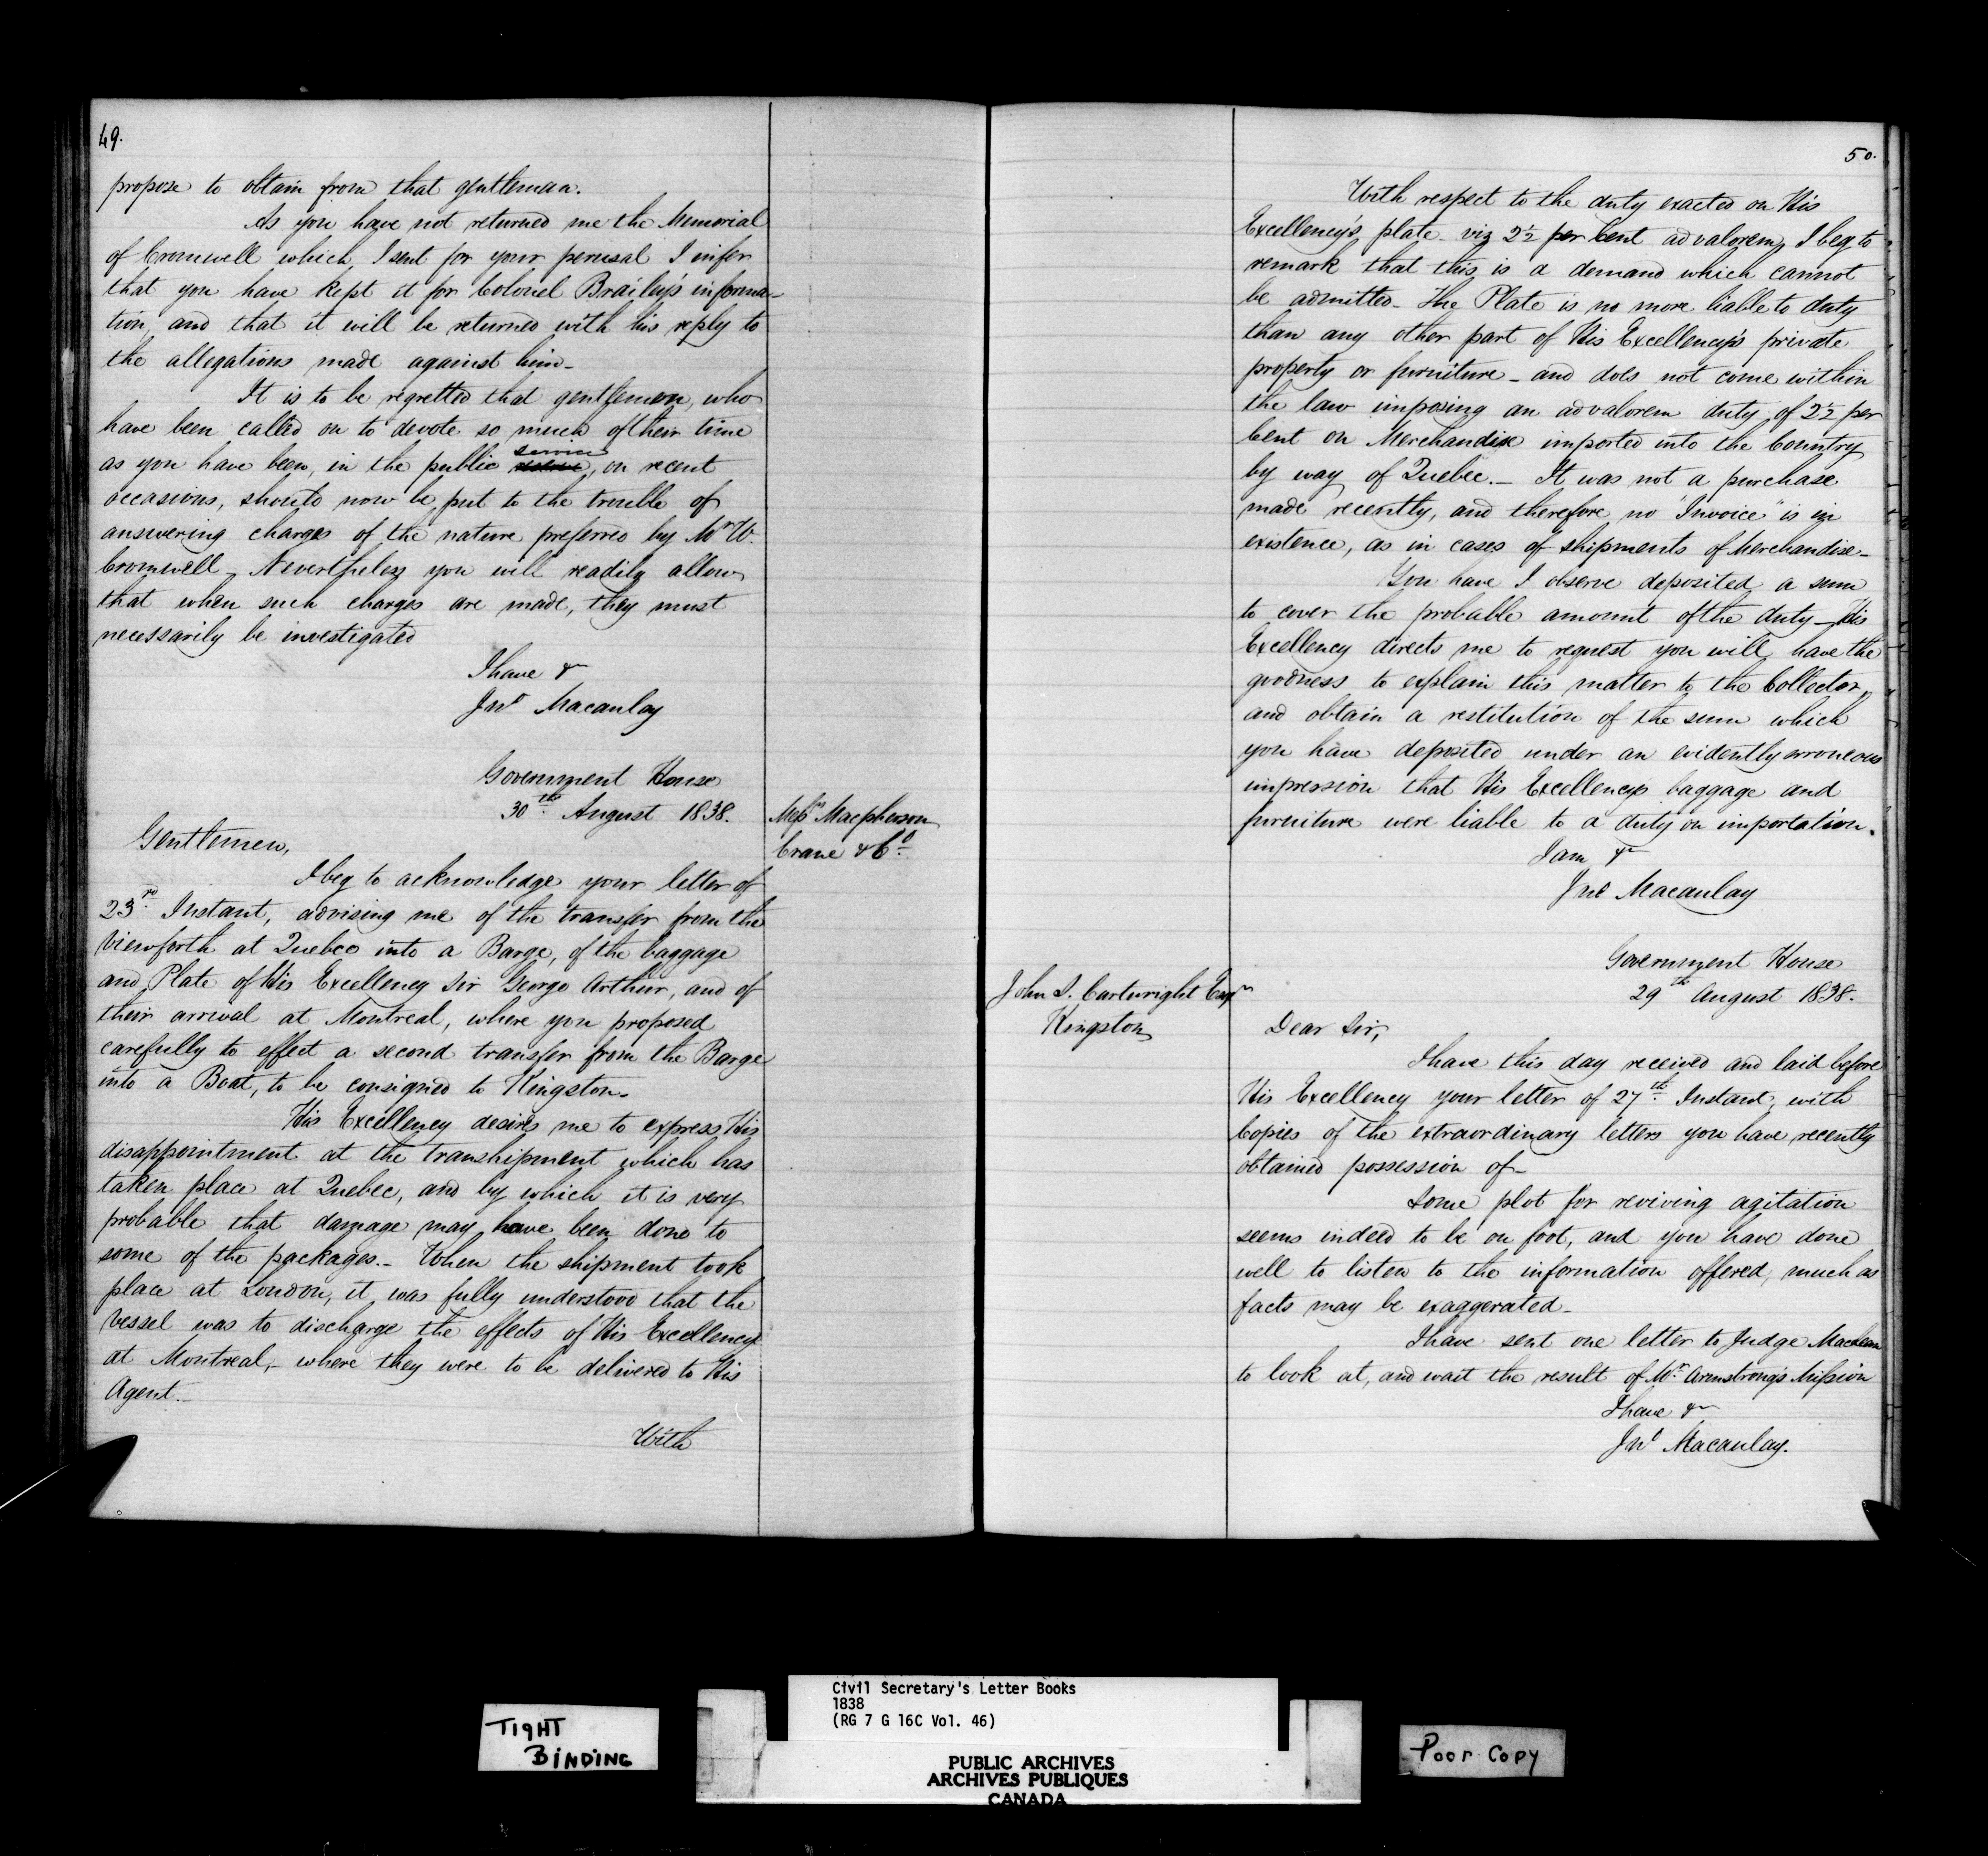 49.
propose to obtain from that gentleman.
As you have not returned me the Memorial
of Cromwell which I sent for your perusal I infer
that you have kept it for Colonel Brailey's informa-
tion, and that it will be returned with his reply to
the allegations made against him-
It is to be regretted that gentlemen, who
have been called on to devote so much of their time
as you have been, in the public service, on recent
occasions, should now be put to the trouble of
answering charges of the nature preferred by Mr W.
Cromwell - Nevertheless you will readily allow
that when such charges are made, they must
necessarily be investigated
I have &
Jno Macaulay
Government House
30th August 1838.
Messrs Macpherson
Crane & Co
Gentlemen,
I beg to acknowledge your letter of
23rd Instant, advising me of the transfer from the
Viewforth at Quebec into a Barge, of the baggage
and Plate of His Excellency Sir George Arthur, and of
their arrival at Montreal, where you proposed
carefully to effect a second transfer from the Barge
into a Boat, to be consigned to Kingston.
His Excellency desires me to express His
disappointment at the transhipment which has
taken place at Quebec, and by which it is very
probable that damage may have been done to
some of the packages.- When the shipment took
place at London, it was fully understood that the
Vessel was to discharge the effects of His Excellency
at Montreal,- where they were to be delivered to His
Agent.-
With
50.
With respect to the duty exacted on His
Excellency's plate - viz 2½ per Cent advalorem, I beg to
remark that this is a demand which cannot
be admitted - The Plate is no more liable to duty
than any other part of His Excellency's private
property or furniture - and does not come within
the law imposing an advalorem duty of 2½ per
Cent on Merchandise imported into the Country
by way of Quebec.- It was not a purchase
made recently, and therefore no "Invoice" is in
existence, as in cases of shipments of Merchandise-
You have I observe deposited a sum
to cover the probable amount of the duty - His
Excellency directs me to request you will have the
goodness to explain this matter to the Collector,
and obtain a restitution of the sum which
you have deposited under an evidently erroneous
impression that His Excellency's baggage and
furniture were liable to a duty on importation.
I am &
Jno Macaulay
Government House
29th August 1838.
John S. Cartwright Esqr
Kingston
Dear Sir,
I have this day received and laid before
His Excellency your letter of 27th Instant, with
Copies of the extraordinary letters you have recently
obtained possession of-
Some plot for reviving agitation
seems indeed to be on foot, and you have done
well to listen to the information offered, much as
facts may be exaggerated-
I have sent one letter to Judge Maclean
to look at, and wait the result of Mr Armstrong's Mission
I have &
Jno Macaulay.
TIGHT
BINDING
Civil Secretary's Letter Books
1838
(RG 7 G 16C Vol. 46)
PUBLIC ARCHIVES
ARCHIVES PUBLIQUES
CANADA
Poor Copy